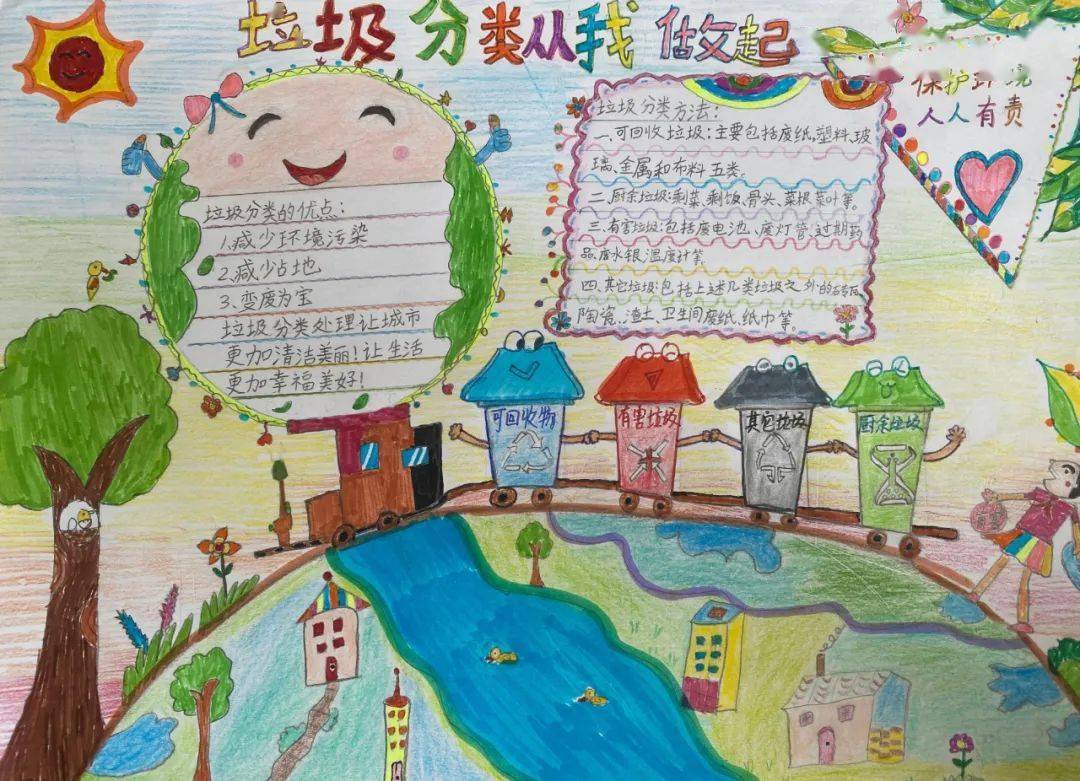 垃圾分类从我做起
保护环境
人人有责
垃圾分类的优点：
1.减少环境污染
2.减少占地
3.变废为宝
垃圾分类处理让城市
更加清洁美丽！让生活
更加幸福美好！
垃圾分类方法：
一、可回收垃圾：主要包括废纸，塑料、玻
璃、金属和布料五类。
二、厨余垃圾：剩菜、剩饭、骨头、菜根菜叶等。
三、有害垃圾：包括废电池、废灯管、过期药
品、废水银温度计等。
四、其它垃圾：包括上述几类垃圾之外的砖瓦
陶瓷、渣土、卫生间废纸、纸巾等。
可回收物
有害垃圾
其它垃圾
厨余垃圾